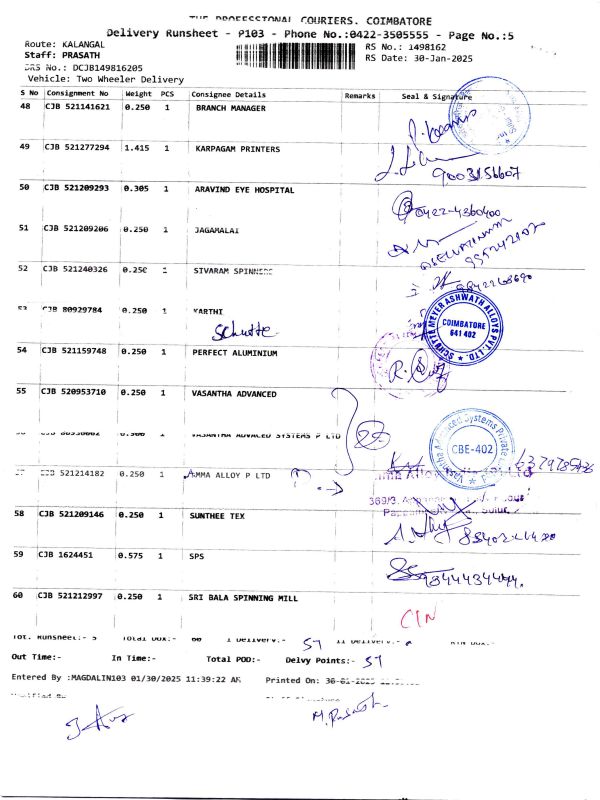 THE PROFESSIONAL COURIERS. COIMBATORE
Delivery Runsheet - P103 - Phone No.:0422-3505555 - Page No.:5
Route: KALANGAL
RS No.: 1498162
Staff: PRASATH
RS Date: 30-Jan-2025
DRS No.: DCJB149816205
Vehicle: Two Wheeler Delivery
S No Consignment No Weight PCS Consignee Details Remarks Seal & Signature
48 CJB 521141621 0.250 1 BRANCH MANAGER
49 CJB 521277294 1.415 1 KARPAGAM PRINTERS
9003156607
50 CJB 521209293 0.305 1 ARAVIND EYE HOSPITAL
0422-4360400
51 CJB 521209206 0.250 1 JAGAMALAI
52 CJB 521240326 0.250 1 SIVARAM SPINNERS
53 CJB 80929784 0.250 1 KARTHI
Schutte
SCHUTTE MEYER ASHWATH ALLOYS PVT. LTD.
COIMBATORE
641 402
54 CJB 521159748 0.250 1 PERFECT ALUMINIUM
55 CJB 520953710 0.250 1 VASANTHA ADVANCED
VASANTHA ADVACED SYSTEMS P LTD
Vasantha Advanced Systems Private
CBE-402
57 CJB 521214182 0.250 1 AMMA ALLOY P LTD
58 CJB 521209146 0.250 1 SUNTHEE TEX
59 CJB 1624451 0.575 1 SPS
60 CJB 521212997 0.250 1 SRI BALA SPINNING MILL
CIN
Tot. Runsheet:- 5 Total Dox:- 60 1 Delivery:- 57
Out Time:- In Time:- Total POD:- Delvy Points:- 57
Entered By :MAGDALIN103 01/30/2025 11:39:22 AM Printed On: 30-01-2025
M. Prasath